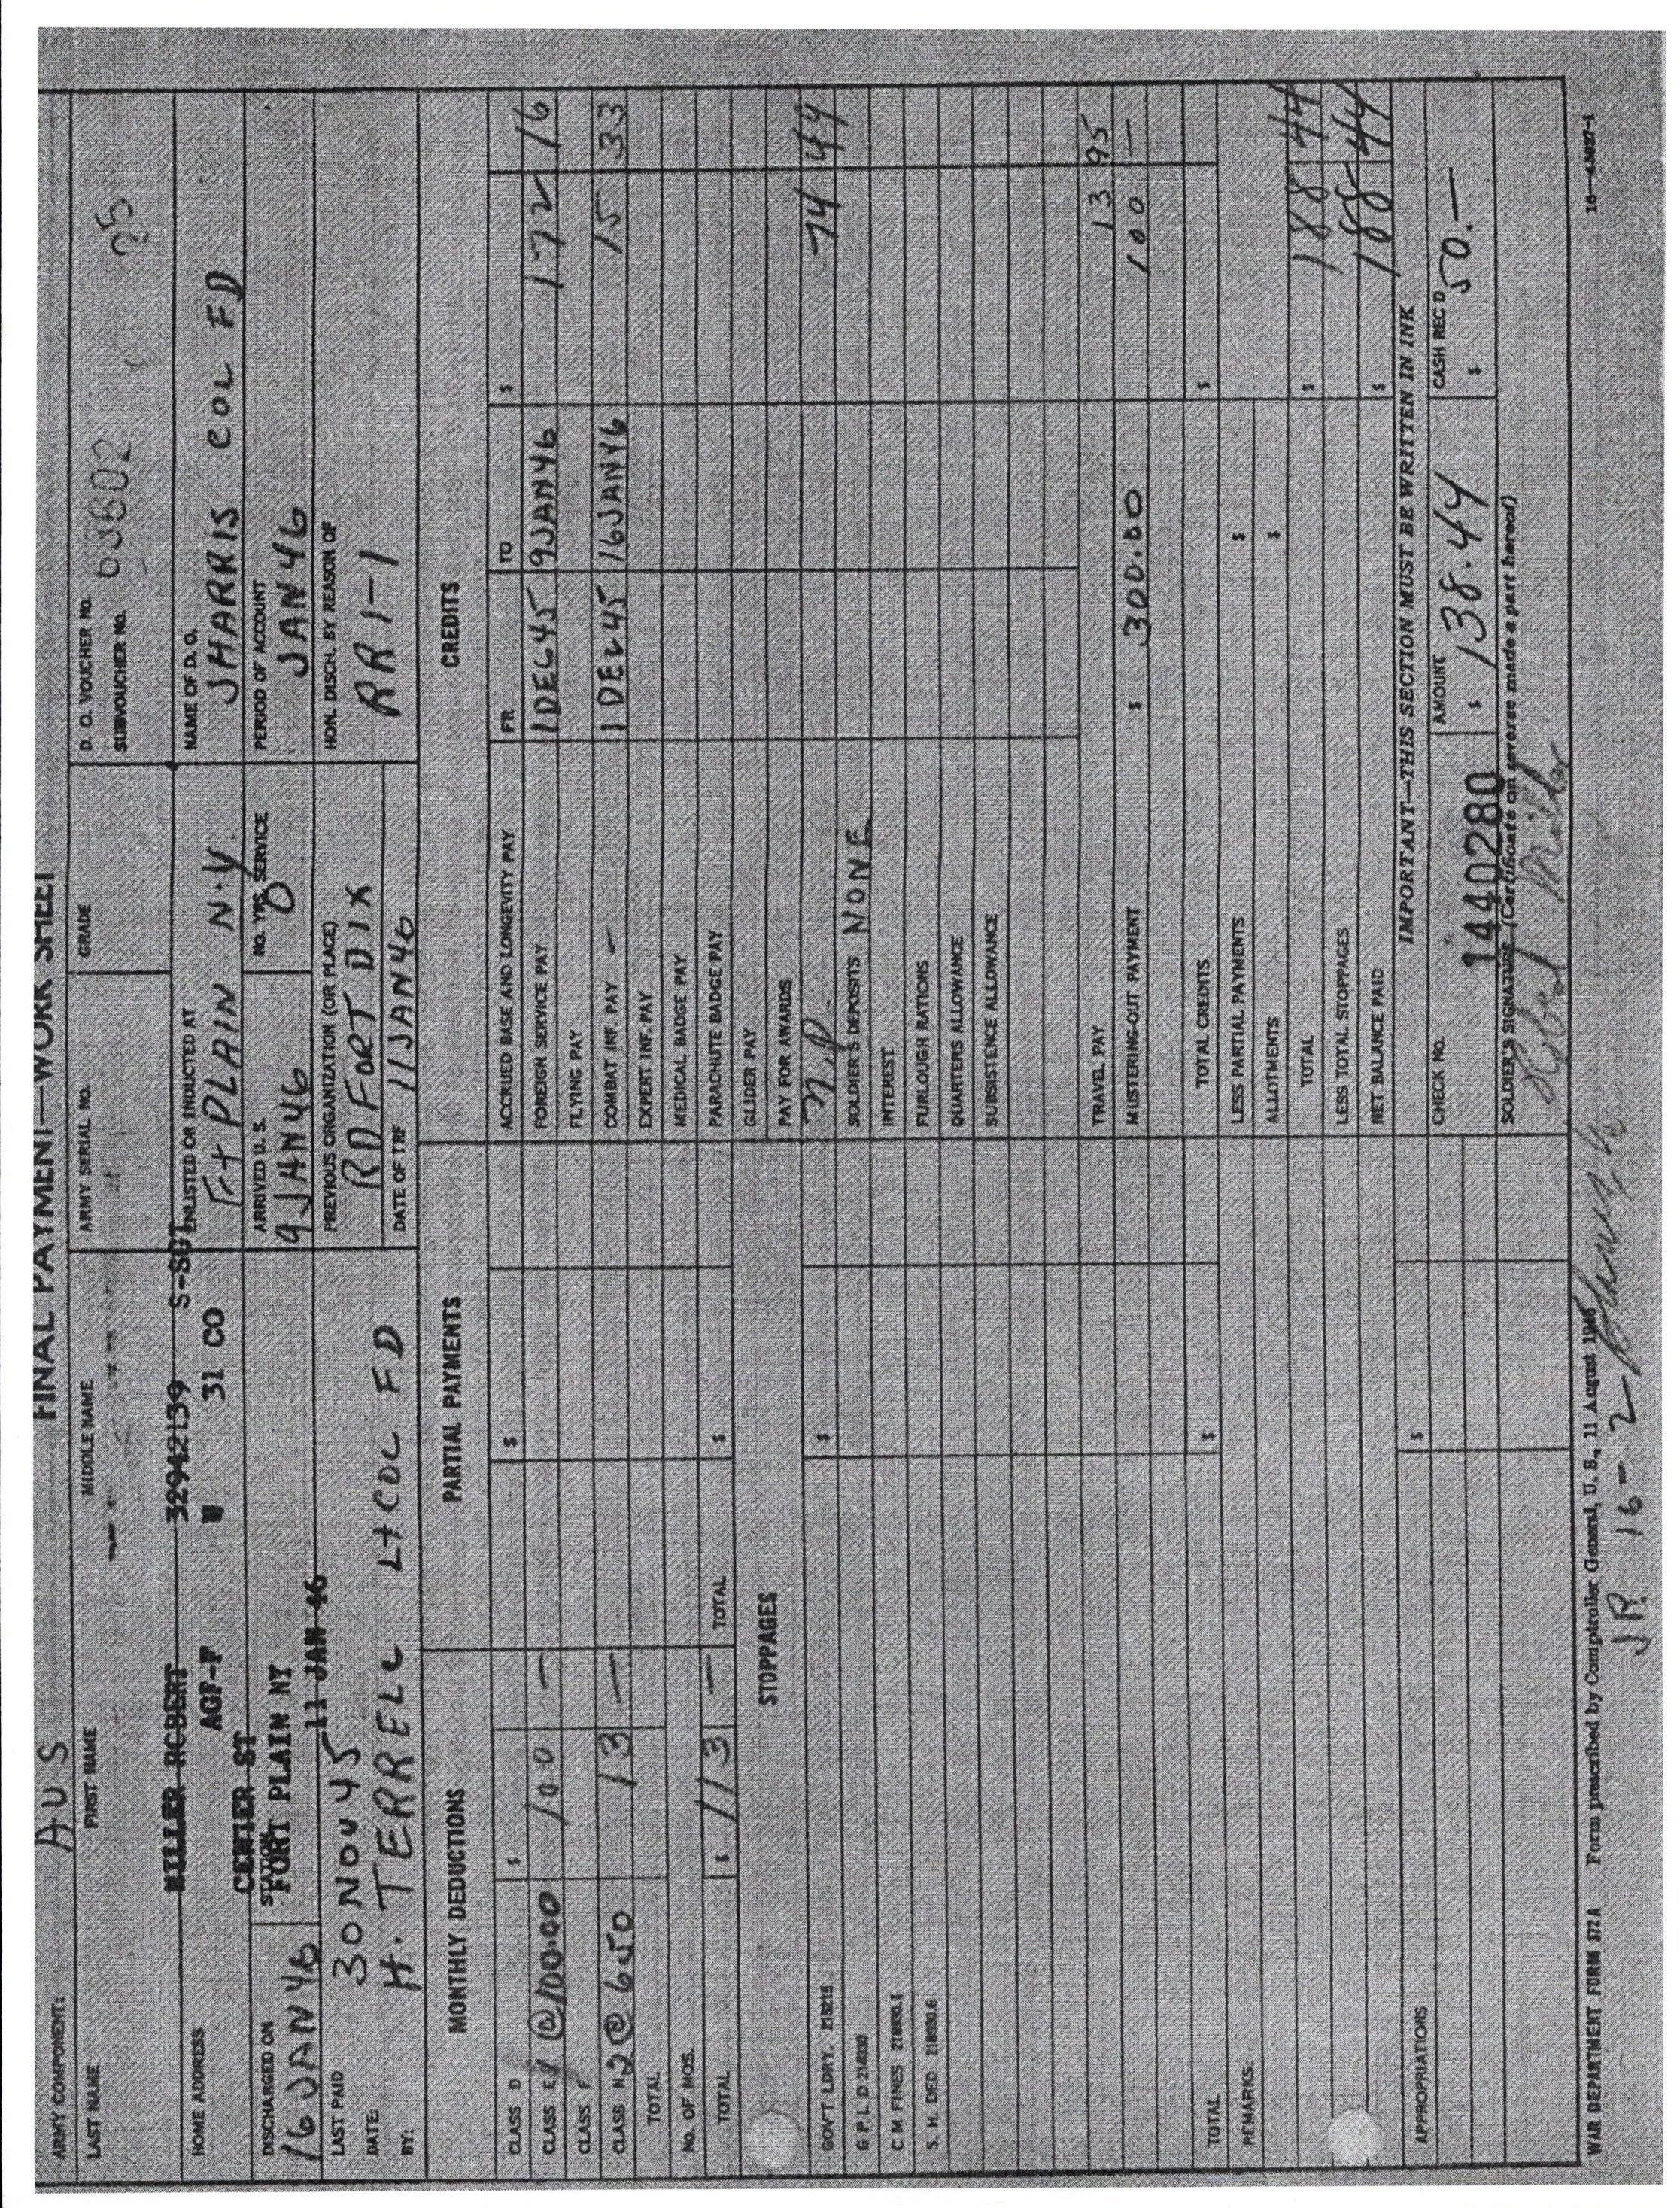 FINAL PAYMENT—WORK SHEET
ARMY COMPONENT: AUS
LAST NAME FIRST NAME MIDDLE NAME ARMY SERIAL NO. GRADE
MILLER ROBERT 32942139 S-SGT
AGF-F W 31 CO
D. O. VOUCHER NO.
SUBVOUCHER NO.
HOME ADDRESS
CENTER ST
FORT PLAIN NY
ENLISTED OR INDUCTED AT
Ft PLAIN N.Y.
NAME OF D. O.
J HARRIS COL FD
DISCHARGED ON
16 JAN 46
STATION
11 JAN 46
ARRIVED U. S.
9 JAN 46
NO. YRS. SERVICE
0
PERIOD OF ACCOUNT
JAN 46
LAST PAID
DATE: 30 NOV 45
BY: H. TERRELL Lt COL FD
PREVIOUS ORGANIZATION (OR PLACE)
RD FORT DIX
DATE OF TRF 11 JAN 46
HON. DISCH. BY REASON OF
RR 1-1
MONTHLY DEDUCTIONS
CLASS D $
CLASS E 1 @ 100.00 100 —
CLASS F
CLASS N 2 @ 650 13 —
TOTAL
NO. OF MOS.
TOTAL $ 113 —
PARTIAL PAYMENTS
$
TOTAL $
STOPPAGES
GOV'T LDRY. $
G P L D
C M FINES
S. H. DED
TOTAL $
REMARKS:
APPROPRIATIONS $
CREDITS
FR TO $
ACCRUED BASE AND LONGEVITY PAY
FOREIGN SERVICE PAY 1 DEC 45 9 JAN 46 172 16
FLYING PAY
COMBAT INF. PAY — 1 DEC 45 16 JAN 46 15 33
EXPERT INF. PAY
MEDICAL BADGE PAY
PARACHUTE BADGE PAY
GLIDER PAY
PAY FOR AWARDS
74 44
SOLDIER'S DEPOSITS NONE
INTEREST
FURLOUGH RATIONS
QUARTERS ALLOWANCE
SUBSISTENCE ALLOWANCE
TRAVEL PAY 13 95
MUSTERING-OUT PAYMENT $ 300.00 100 —
TOTAL CREDITS $
LESS PARTIAL PAYMENTS $
ALLOTMENTS $
TOTAL $ 188 44
LESS TOTAL STOPPAGES
NET BALANCE PAID $ 188 44
IMPORTANT—THIS SECTION MUST BE WRITTEN IN INK
CHECK NO. AMOUNT CASH REC'D
1440280 $ 138.44 $ 50.—
SOLDIER'S SIGNATURE (Certificate on reverse made a part hereof)
Robert Miller
WAR DEPARTMENT FORM 372A Form prescribed by Comptroller General, U. S., 11 August
JR 16-2